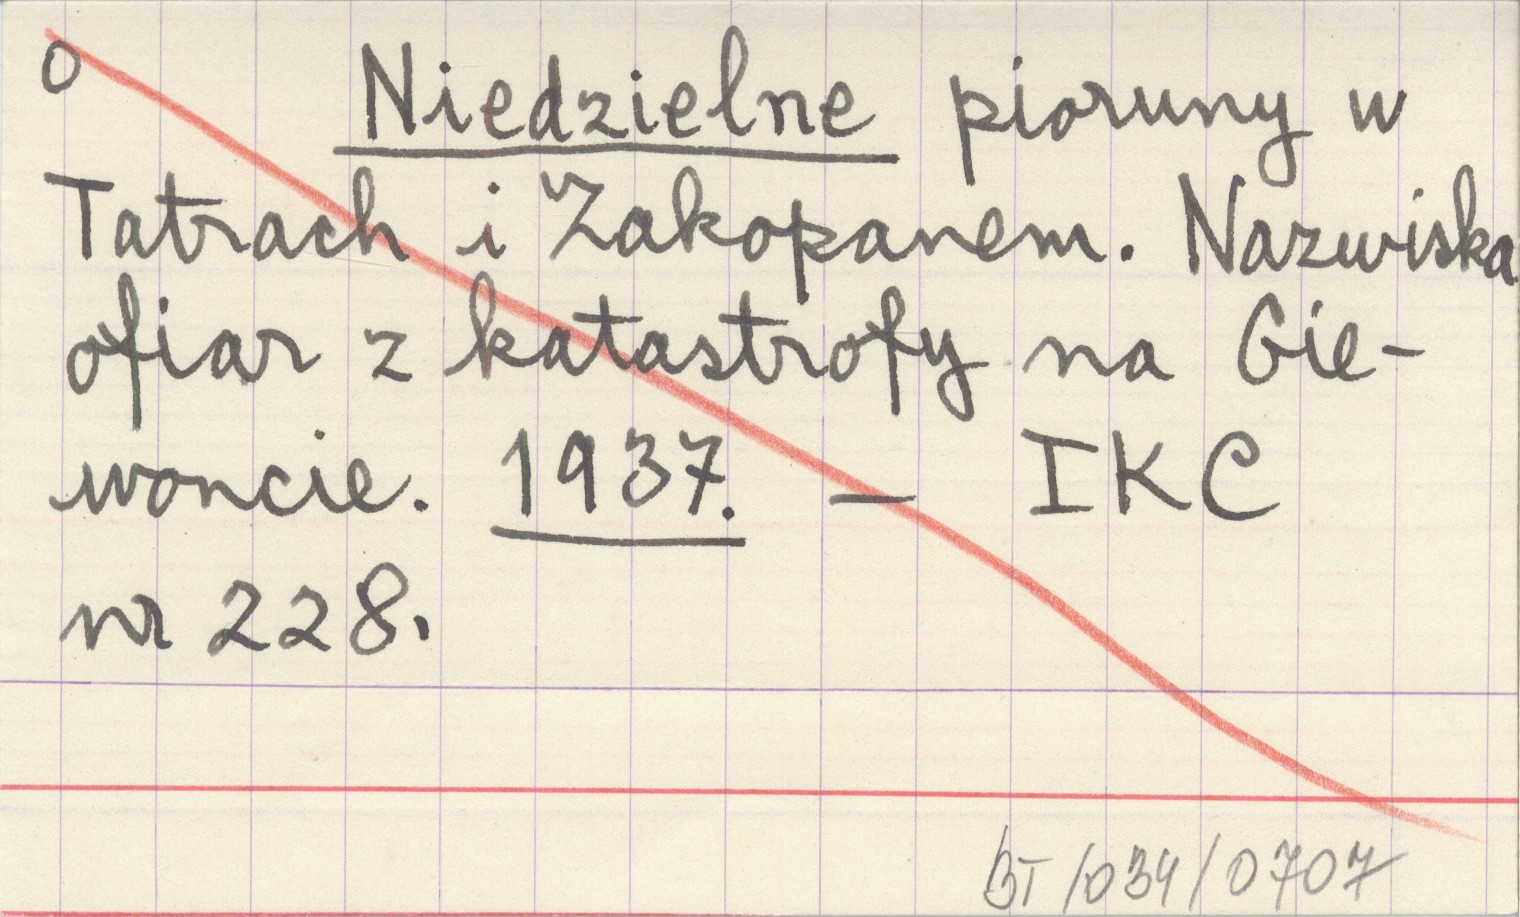 O Niedzielne pioruny w
Tatrach i Zakopanem. Nazwiska
ofiar z katastrofy na Gie-
woncie. 1937. — IKC
nr 228.
BT/034/0707